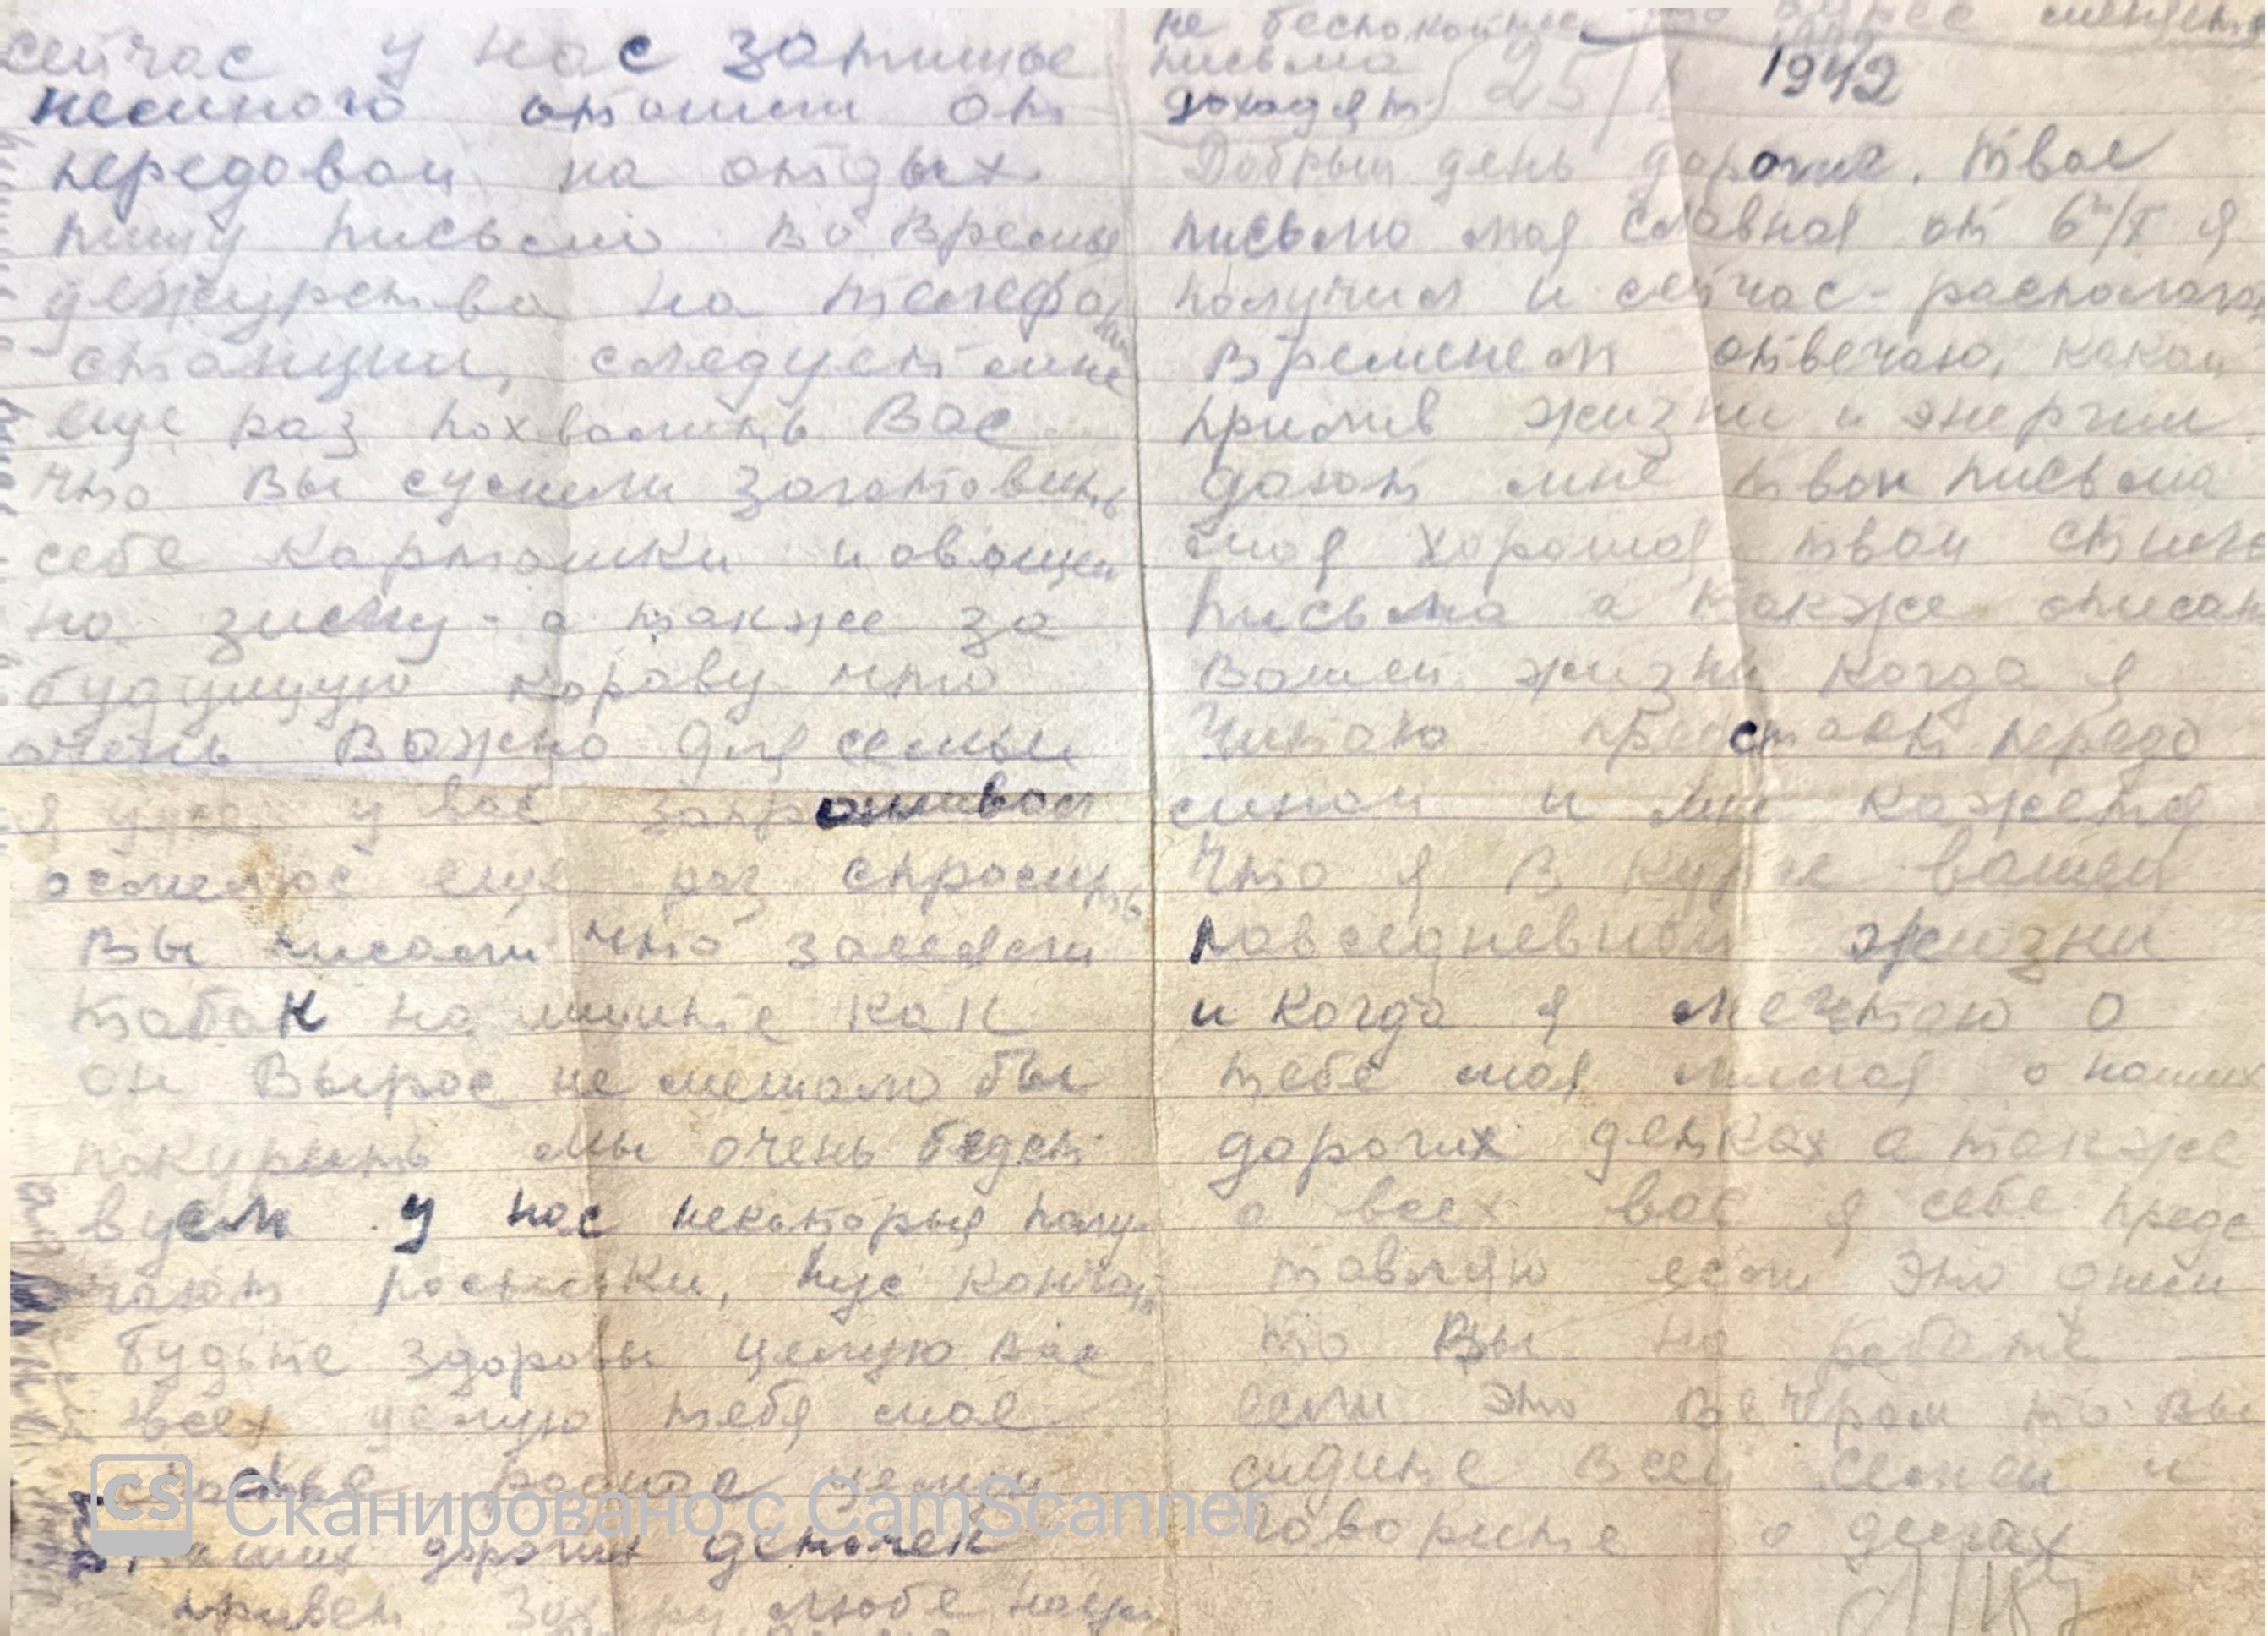 не беспокойтесь что адрес
письма
доходят 25/
1942
Добрый день дорогие. твое
письмо моя славная от 6го/X я
получил и сейчас - располагаю
временем отвечаю, какой
прилив жизни и энергии
дают мне твои письма
моя хорошая твои
письма а также описан
вашей жизни когда я
читаю предстает передо
мной и мне кажется
что я в курсе вашей
повседневной жизни
и когда я мечтаю о
тебе моя милая о наших
дорогих детках а также
о всех вас я себе предс
тавляю если это днем
то вы на работе
если это вечером то вы
сидите всей семьей и
говорите о делах
сейчас у нас затишье
немного отошли от
передовой на отдых
пишу письмо во время
дежурства на телефон
станции, следует мне
еще раз похвалить Вас
что Вы сумели заготовить
себе картошки и овощей
на зиму - а также за
будущую корову что
очень важно для семьи
я уже у вас запрашивал
осмелюс еще раз спросить
Вы писали что засеяли
табак напишите как
он вырос не мешало бы
покурить мы очень бедст
вуем у нас некоторыя полу
чают посылки, пус кончаю
будьте здоровы целую вас
всех целую тебя мое
счастье целуй
наших дорогих деточек
привет Любе
Сканировано с CamScanner